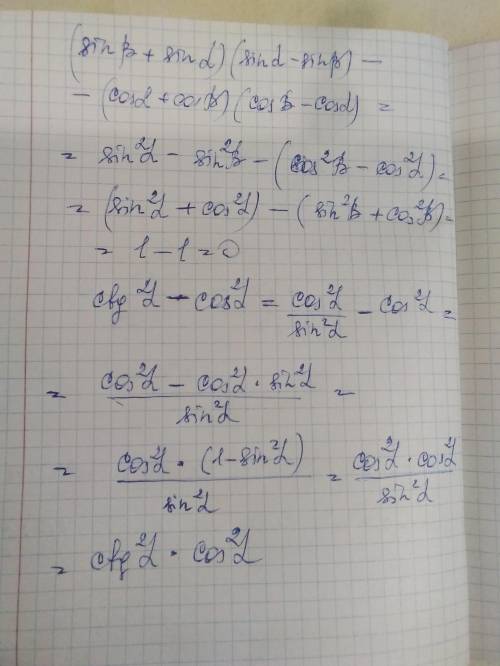 (sinβ + sinα)(sinα - sinβ) -
- (cosα + cosβ)(cosβ - cosα) =
= sin²α - sin²β - (cos²β - cos²α) =
= (sin²α + cos²α) - (sin²β + cos²β) =
= 1 - 1 = 0
ctg²α - cos²α = cos²α/sin²α - cos²α =
= (cos²α - cos²α · sin²α)/sin²α =
= cos²α · (1 - sin²α)/sin²α = cos²α · cos²α/sin²α
= ctg²α · cos²α